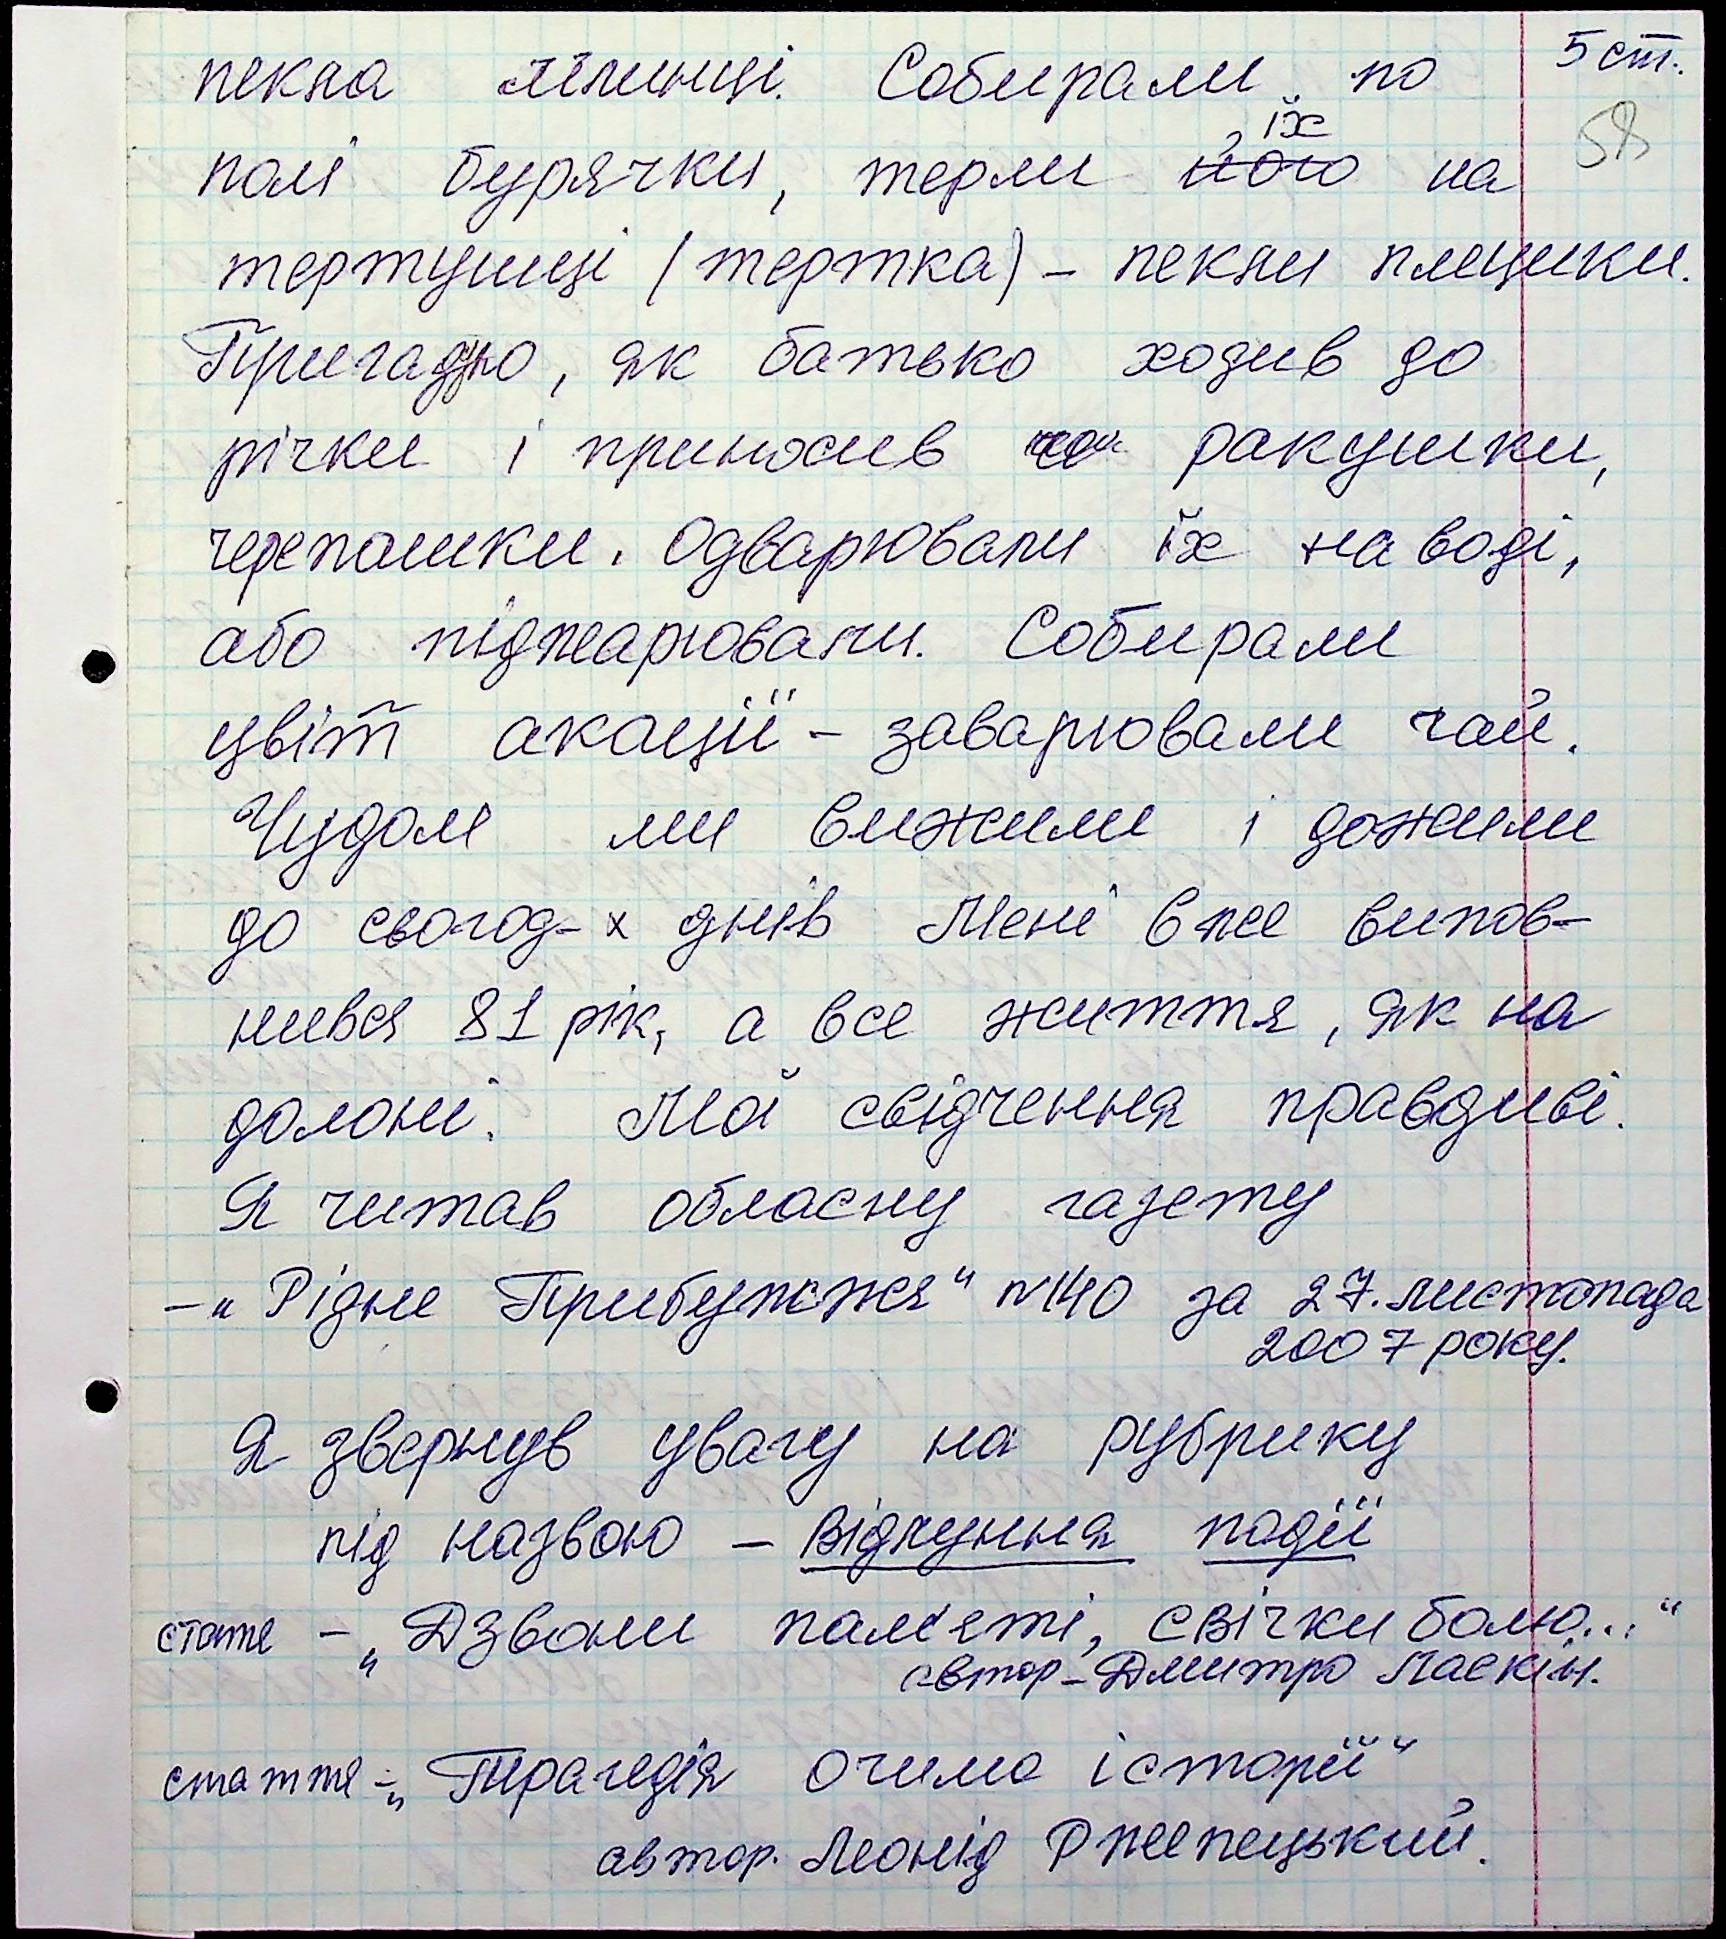 5 ст.
58
пекла млинці. Собирали по
полі бурячки, терли його їх на
тертушці (тертка) – пекли плецики.
Пригадую, як батько ходив до
річки і приносив ракушки,
черепашки. Одварювали їх на воді,
або піджарювали. Собирали
цвіт акації – заварювали чай.
Чудом ми вижили і дожили
до сьогод-х днів Мені вже випов-
нився 81 рік, а все життя, як на
долоні. Мої свідчення правдиві.
Я читав обласну газету
– „Рідне Прибужжя" №140 за 27. листопада
2007 року.
Я звернув увагу на рубрику
під назвою – Відлуння події
статя – „Дзвони пам'яті, свічки болю..."
автор – Дмитро Ласкін.
стаття – „Трагедія очима історії"
автор. Леонід Ржепецький.